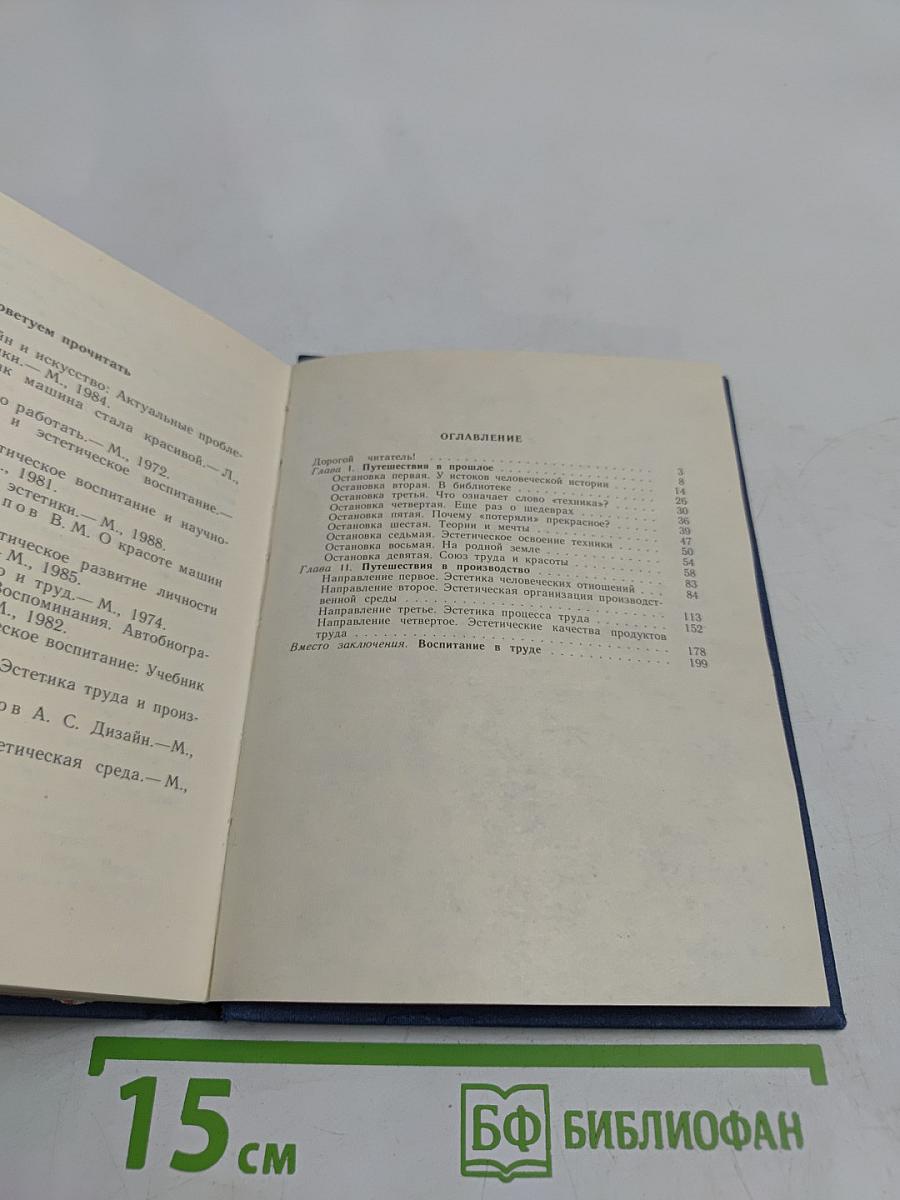 оветуем прочитать
йн и искусство: Актуальные пробле-
ики.— М., 1984.
ак машина стала красивой.— Л.,
о работать.— М., 1972.
и эстетическое воспитание.—
тическое воспитание и научно-
., 1981.
эстетики.— М., 1988.
пов В. М. О красоте машин
тическое развитие личности
— М., 1985.
о и труд.— М., 1974.
Воспоминания. Автобиогра-
М., 1982.
еское воспитание: Учебник
Эстетика труда и произ-
ов А. С. Дизайн.—М.,
етическая среда.— М.,
ОГЛАВЛЕНИЕ
Дорогой читатель! . . . . . . . . . . . . . . . . . . . 3
Глава I. Путешествия в прошлое . . . . . . . . . . . . . 8
Остановка первая. У истоков человеческой истории . . . . . 14
Остановка вторая. В библиотеке . . . . . . . . . . . . 26
Остановка третья. Что означает слово «техника»? . . . . . 30
Остановка четвертая. Еще раз о шедеврах . . . . . . . . 36
Остановка пятая. Почему «потеряли» прекрасное? . . . . . 39
Остановка шестая. Теории и мечты . . . . . . . . . . . 47
Остановка седьмая. Эстетическое освоение техники . . . . . 50
Остановка восьмая. На родной земле . . . . . . . . . . 54
Остановка девятая. Союз труда и красоты . . . . . . . . 58
Глава II. Путешествия в производство . . . . . . . . . . . 83
Направление первое. Эстетика человеческих отношений . . . 84
Направление второе. Эстетическая организация производст-
венной среды . . . . . . . . . . . . . . . . . . . . 113
Направление третье. Эстетика процесса труда . . . . . . . 152
Направление четвертое. Эстетические качества продуктов
труда . . . . . . . . . . . . . . . . . . . . . . . 178
Вместо заключения. Воспитание в труде . . . . . . . . . . 199
15 см
БФ БИБЛИОФАН